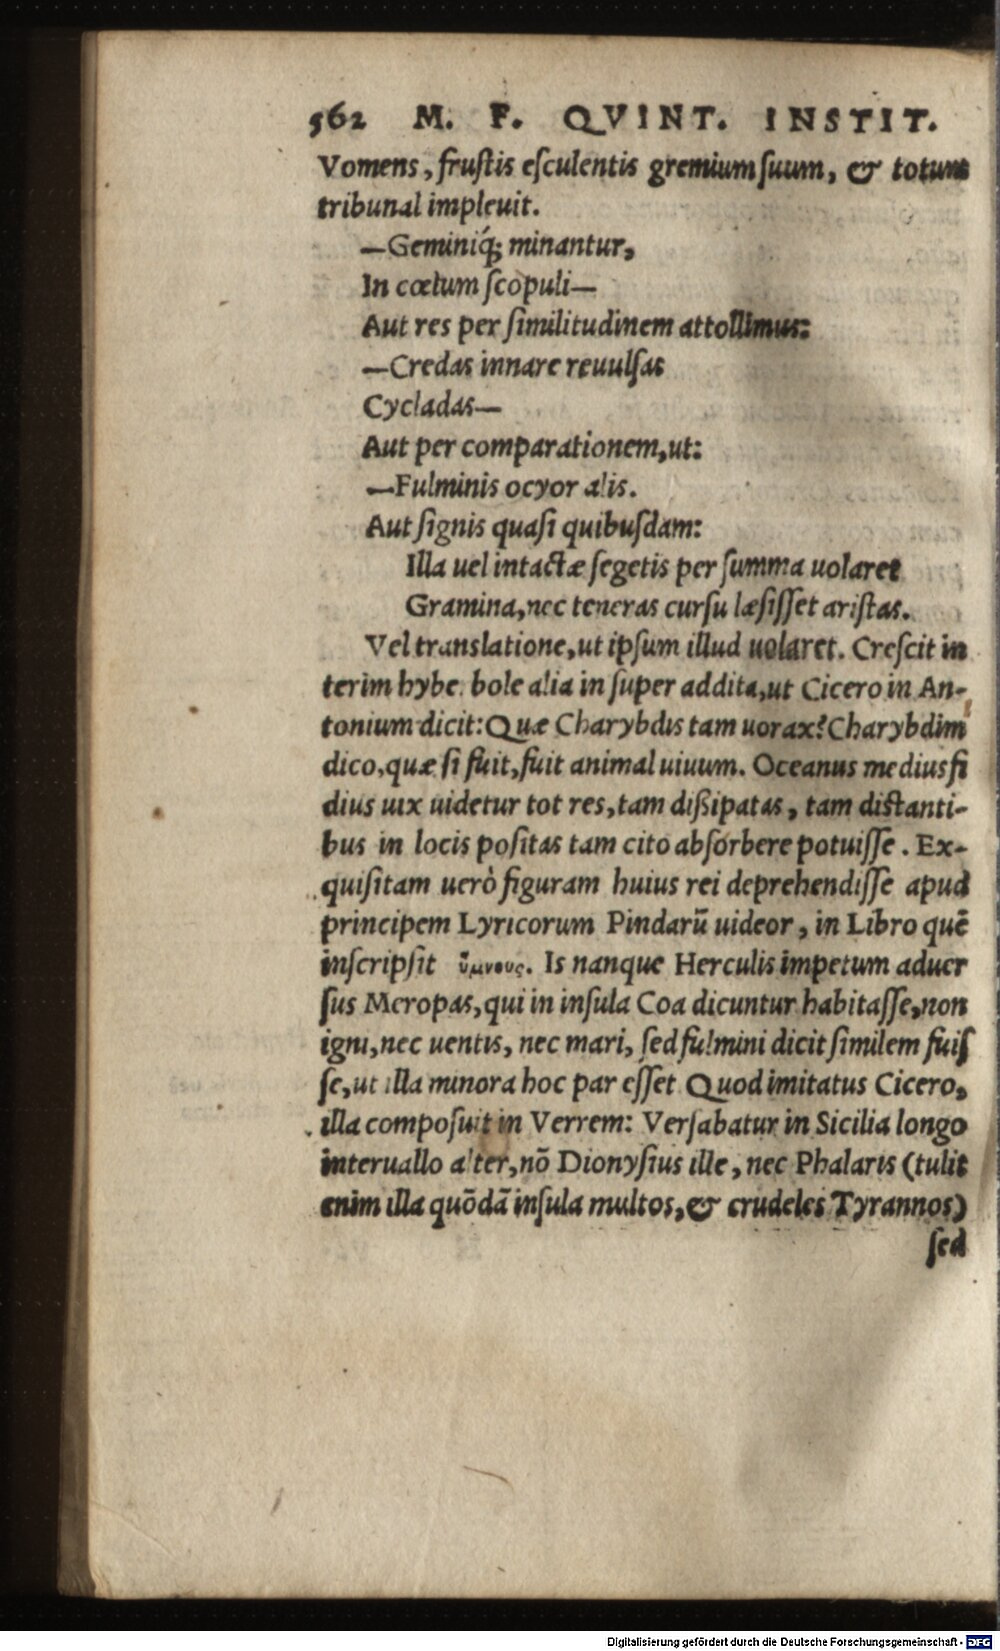 562 M. F. QVINT. INSTIT.
Vomens, fruſtis eſculentis gremium ſuum, & totum
tribunal impleuit.
—Geminiq́; minantur,
In cœlum ſcopuli—
Aut res per ſimilitudinem attollimus:
—Credas innare reuulſas
Cycladas—
Aut per comparationem, ut:
—Fulminis ocyor alis.
Aut ſignis quaſi quibuſdam:
Illa uel intactæ ſegetis per ſumma uolaret
Gramina, nec teneras curſu læſiſſet ariſtas.
Vel translatione, ut ipſum illud uolaret. Creſcit in
terim hybe bole alia in ſuper addita, ut Cicero in An-
tonium dicit: Quæ Charybdis tam uorax? Charybdim
dico, quæ ſi fuit, fuit animal uiuum. Oceanus mediusfi
dius uix uidetur tot res, tam dißipatas, tam diſtanti-
bus in locis poſitas tam cito abſorbere potuiſſe. Ex-
quiſitam uerò figuram huius rei deprehendiſſe apud
principem Lyricorum Pindarū uideor, in Libro quē
inſcripſit ὕμνους. Is nanque Herculis impetum aduer
ſus Meropas, qui in inſula Coa dicuntur habitaſſe, non
igni, nec uentis, nec mari, ſed fulmini dicit ſimilem fuiſ
ſe, ut illa minora hoc par eſſet Quod imitatus Cicero,
illa compoſuit in Verrem: Verſabatur in Sicilia longo
interuallo alter, nō Dionyſius ille, nec Phalaris (tulit
enim illa quōdā inſula multos, & crudeles Tyrannos)
ſed
Digitalisierung gefördert durch die Deutsche Forschungsgemeinschaft - DFG